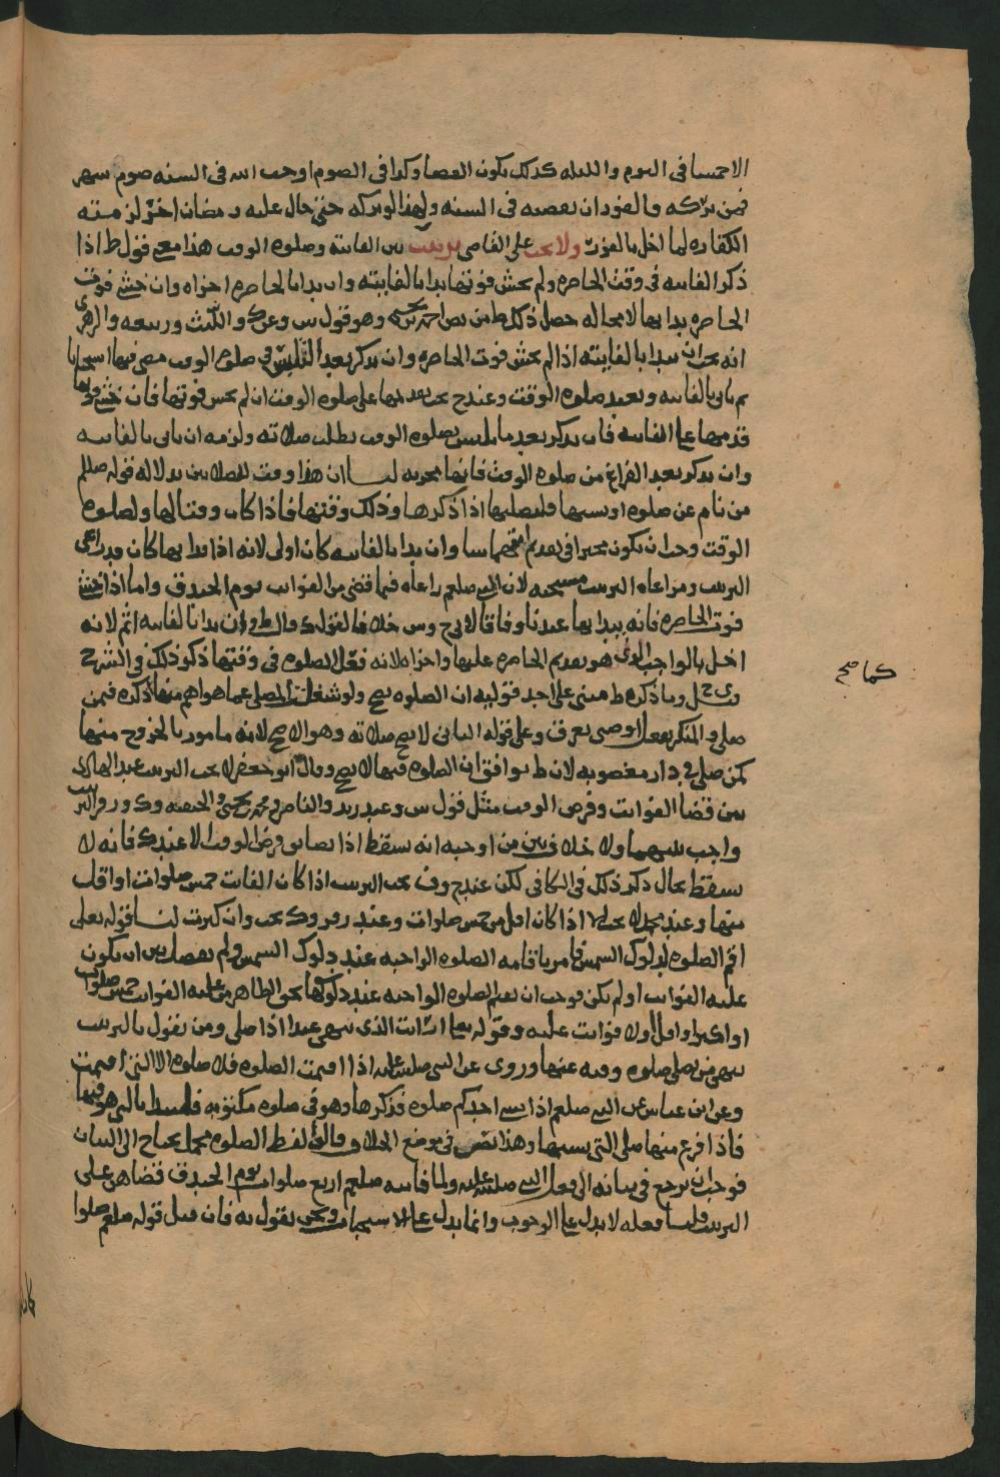 الا خمسا في اليوم والليله كذلك يكون القضا وكذا في الصوم اوجب الله في السنه صوم شهر
فمن تركه فالفور ان يقضيه في السنه ولهذا لو تركه حتى حال عليه رمضان اخر لزمته
الكفاره لما اخل بالفور ولا يجب على القاضي ترتيب بين الفايتة وصلوة الوقت هذا معنى قول ط اذا
ذكر الفايته في وقت الحاضره ولم يخش فوتها بدا بالفايته وان بدا بالحاضره اجزاه وان خشي فوت
الحاضره بدا بها لا محاله حصل ذلك ط من نص احمد بن يحيى وهو قول س وعن ك والليث وربيعه والزهري
انه يجب ان يبدا بالفايته اذا لم يخش فوت الحاضره وان ذكر بعد التلبس في صلوة الوقت مضى فيها استحبابا
ثم ياتي بالفايته ويعيد صلوة الوقت وعند ح يجب تقديمها على صلوة الوقت ان لم يخش فوتها فان خشي فوتها
قدمها على الفايته فان ذكر بعد ما تلبس بصلوة الوقت بطلت صلاته ولزمه ان ياتي بالفايته
وان ذكر بعد الفراغ من صلوة الوقت فانها مجزيه لنا ان هذا وقت للصلاتين بدلاله قوله صللم
من نام عن صلوة او نسيها فليصليها اذا ذكرها فذلك وقتها فاذا كان وقتا لها ولصلوة
الوقت وجب ان يكون مخيرا في تقديم ايتهما شا وان بدا بالفايته كان اولى لانه اذا بدا بها كان قد راعى
الترتيب ومراعاة الترتيب مستحبه لان النبي صلعم راعاه فيما قضى من الفوايت يوم الخندق واما اذا خشي
فوت الحاضره فانه يبدا بها عندنا وفاقا لاح وس خلافا لقول ك قال ط وان بدا بالفايته اثم لانه
اخل بالواجب الذي هو تقديم الحاضره عليها واجزاه لانه فعل الصلوه في وقتها ذكر ذلك في الشرح
وما ذكره ط مبني على احد قوليه ان الصلوه تصح ولو شغلت المصلي عما هو اهم منها ذكره فيمن
صلى والمنكر يفعل او صبي يغرق وعلى قوله الثاني لا تصح صلاته وهو الاصح لانه مامور بالخروج منها
كمن صلى في دار مغصوبه لان ط يوافق ان الصلوه فيها لا تصح وقال ابو جعفر لا يجب الترتيب عند الهادي
بين قضا الفوايت وفرض الوقت مثل قول س وعند زيد والناصر ومحمد بن يحيى والحنفيه وك وزفر الترتيب
واجب بينهما ولا خلاف بين من اوجبه انه يسقط اذا تضايق فرض الوقت الا عند ك فانه لا
يسقط بحال ذكر ذلك في الكافي لكن عند ح وف يجب الترتيب اذا كان الفايت خمس صلوات او اقل
منها وعند محمد لا يجب الا اذا كان اقل من خمس صلوات وعند زفر وك يجب وان كثرت لنا قوله تعلى
اقم الصلوه لدلوك الشمس فامر باقامه الصلوه الواجبه عند دلوك الشمس ولم يفصل بين ان يكون
عليه الفوايت او لم يكن فوجب ان يقيم الصلوه الواجبه عند دلوكها بحق الظاهر من عليه الفوايت خمس صلوات
او اكثر او اقل او لا فوايت عليه وقوله تعلى ارايت الذي ينهى عبدا اذا صلى ومن يقول بالترتيب
ينهى من يصلي صلوة وقته عنها وروي عن النبي صلى الله عليه اذا اقيمت الصلوه فلا صلوة الا التي اقيمت
وعن ابن عباس عن النبي صلعم اذا نسي احدكم صلوة فذكرها وهو في صلوة مكتوبه فليبدا بالتي هو فيها
فاذا فرغ منها صلى التي نسيها وهذا نص في موضع الخلاف قالوا لفظ الصلوه مجمل يحتاج الى البيان
فوجب ان يرجع في بيانه الى فعل النبي صلى الله عليه ولما فاته صلعم اربع صلوات يوم الخندق قضاهن على
الترتيب قلنا فعله لا يدل على الوجوب وانما يدل على الاستحباب ونحن نقول به فان قيل قوله صلعم صلوا
كما صح